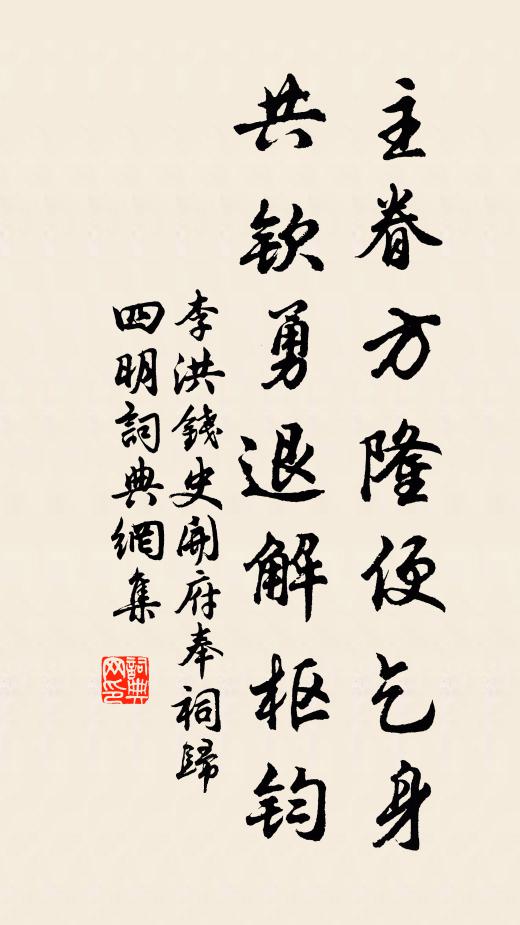 主眷方隆便乞身
共钦勇退解枢钧
李洪錢史開府奉祠歸
四明詞典網集
詞典
网印